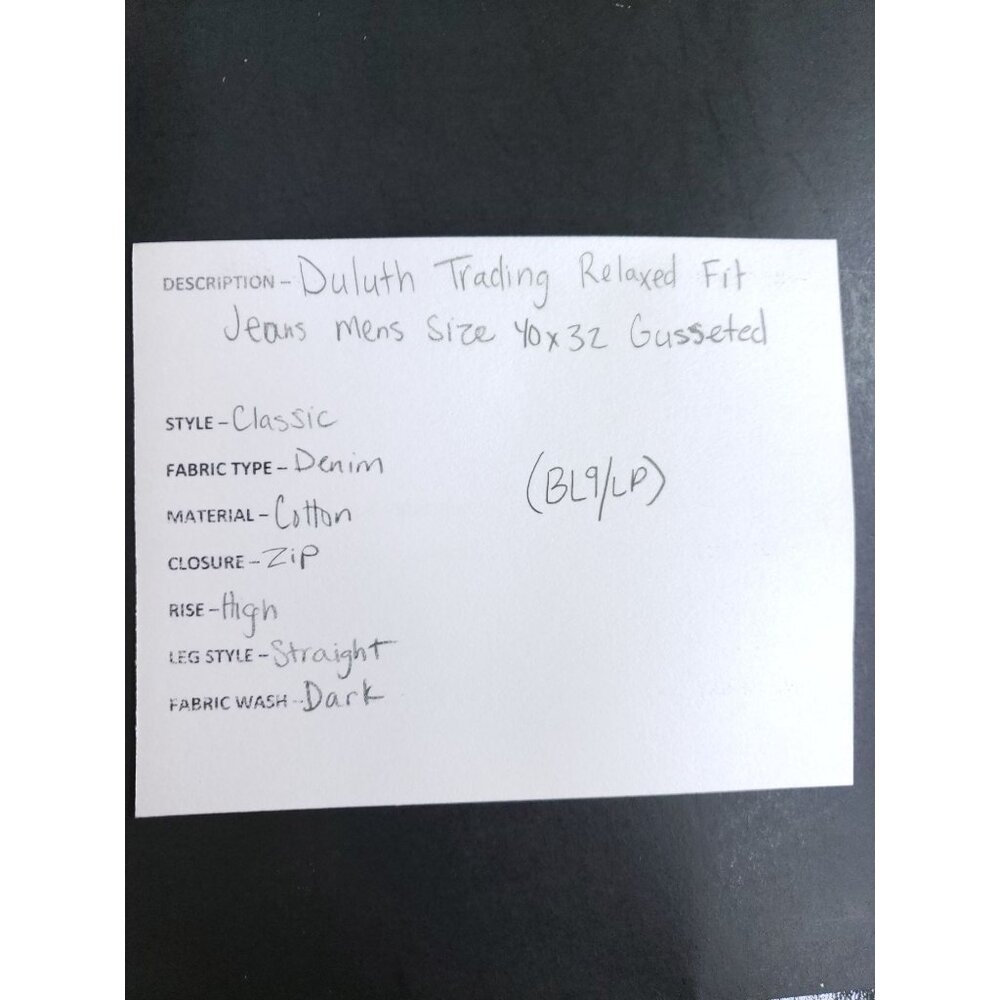 DESCRIPTION - Duluth Trading Relaxed Fit
Jeans mens Size 40x32 Gusseted
STYLE - Classic
FABRIC TYPE - Denim
(BL9/LP)
MATERIAL - Cotton
CLOSURE - Zip
RISE - High
LEG STYLE - Straight
FABRIC WASH - Dark